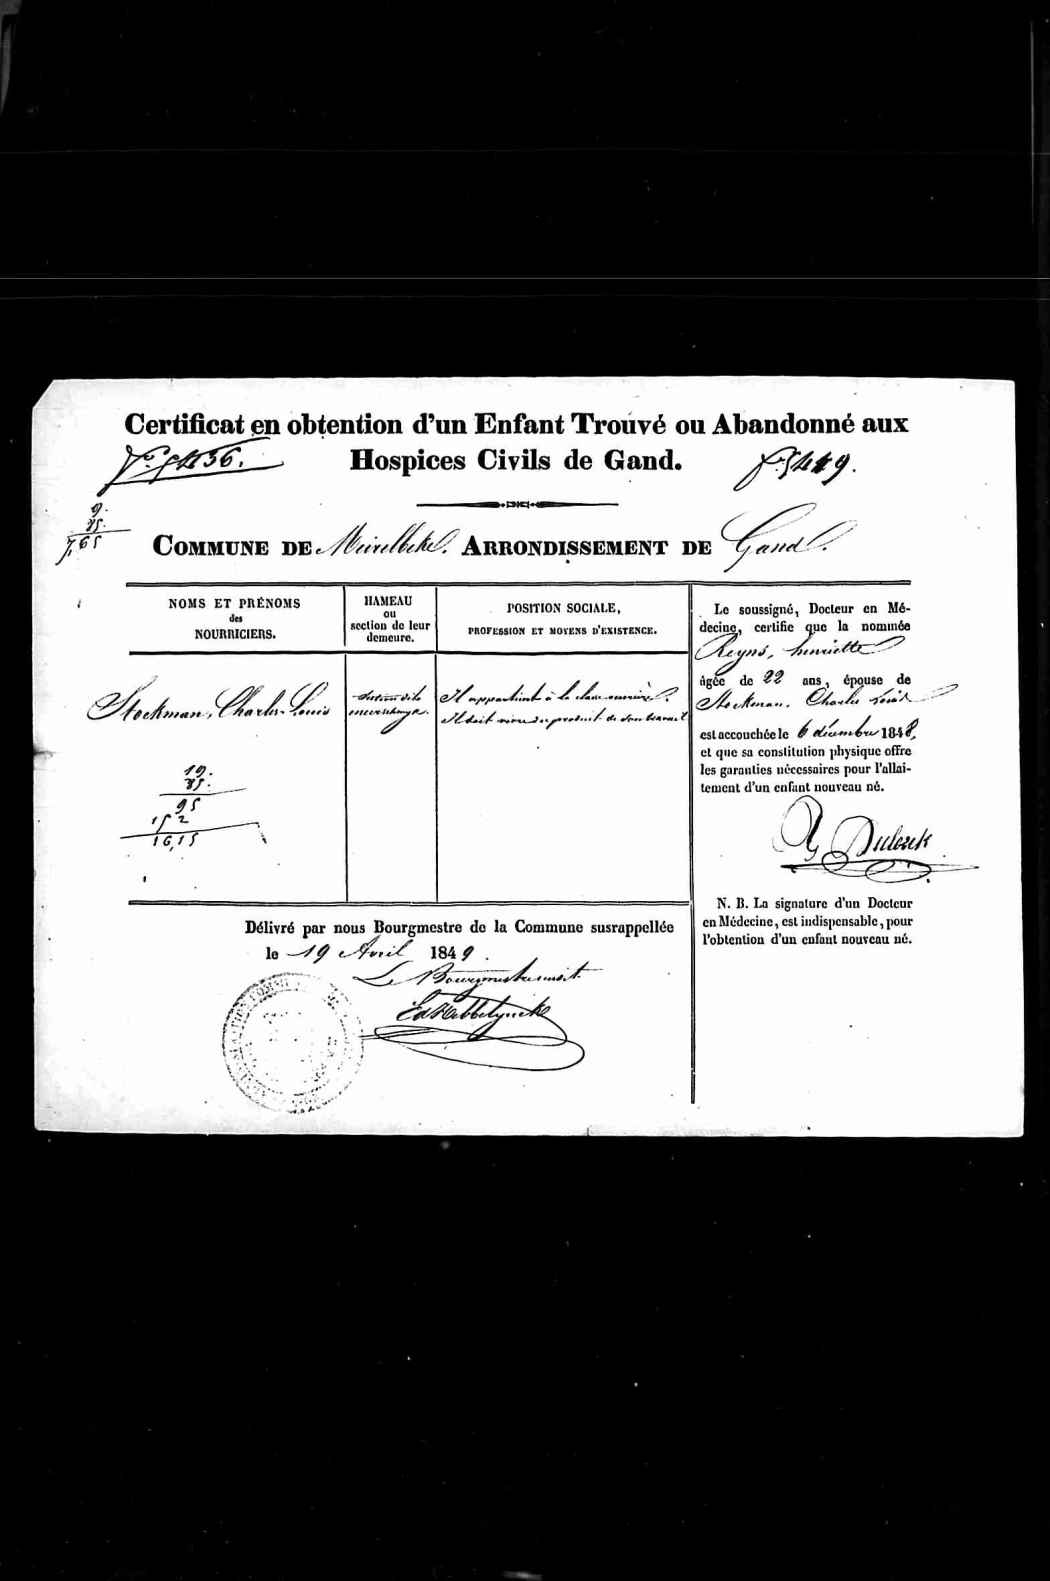 Certificat en obtention d'un Enfant Trouvé ou Abandonné aux
Hospices Civils de Gand.
5436.
5449.
9.
85.
7,65
COMMUNE DE Meirelbeke. ARRONDISSEMENT DE Gand.
NOMS ET PRÉNOMS
des
NOURRICIERS.
HAMEAU
ou
section de leur
demeure.
POSITION SOCIALE,
PROFESSION ET MOYENS D'EXISTENCE.
Stockman, Charles Louis
section dite
Il appartient à la classe ouvrière.
Il doit vivre du produit de son travail
19.
85.
95
152
16,15
Le soussigné, Docteur en Mé-
decine, certifie que la nommée
Reyns, henriette
âgée de 22 ans, épouse de
Stockman, Charles Louis
est accouchée le 6 décembre 1848,
et que sa constitution physique offre
les garanties nécessaires pour l'allai-
tement d'un enfant nouveau né.
N. B. La signature d'un Docteur
en Médecine, est indispensable, pour
l'obtention d'un enfant nouveau né.
Délivré par nous Bourgmestre de la Commune susrappellée
le 19 Avril 1849.
Le Bourgmestre